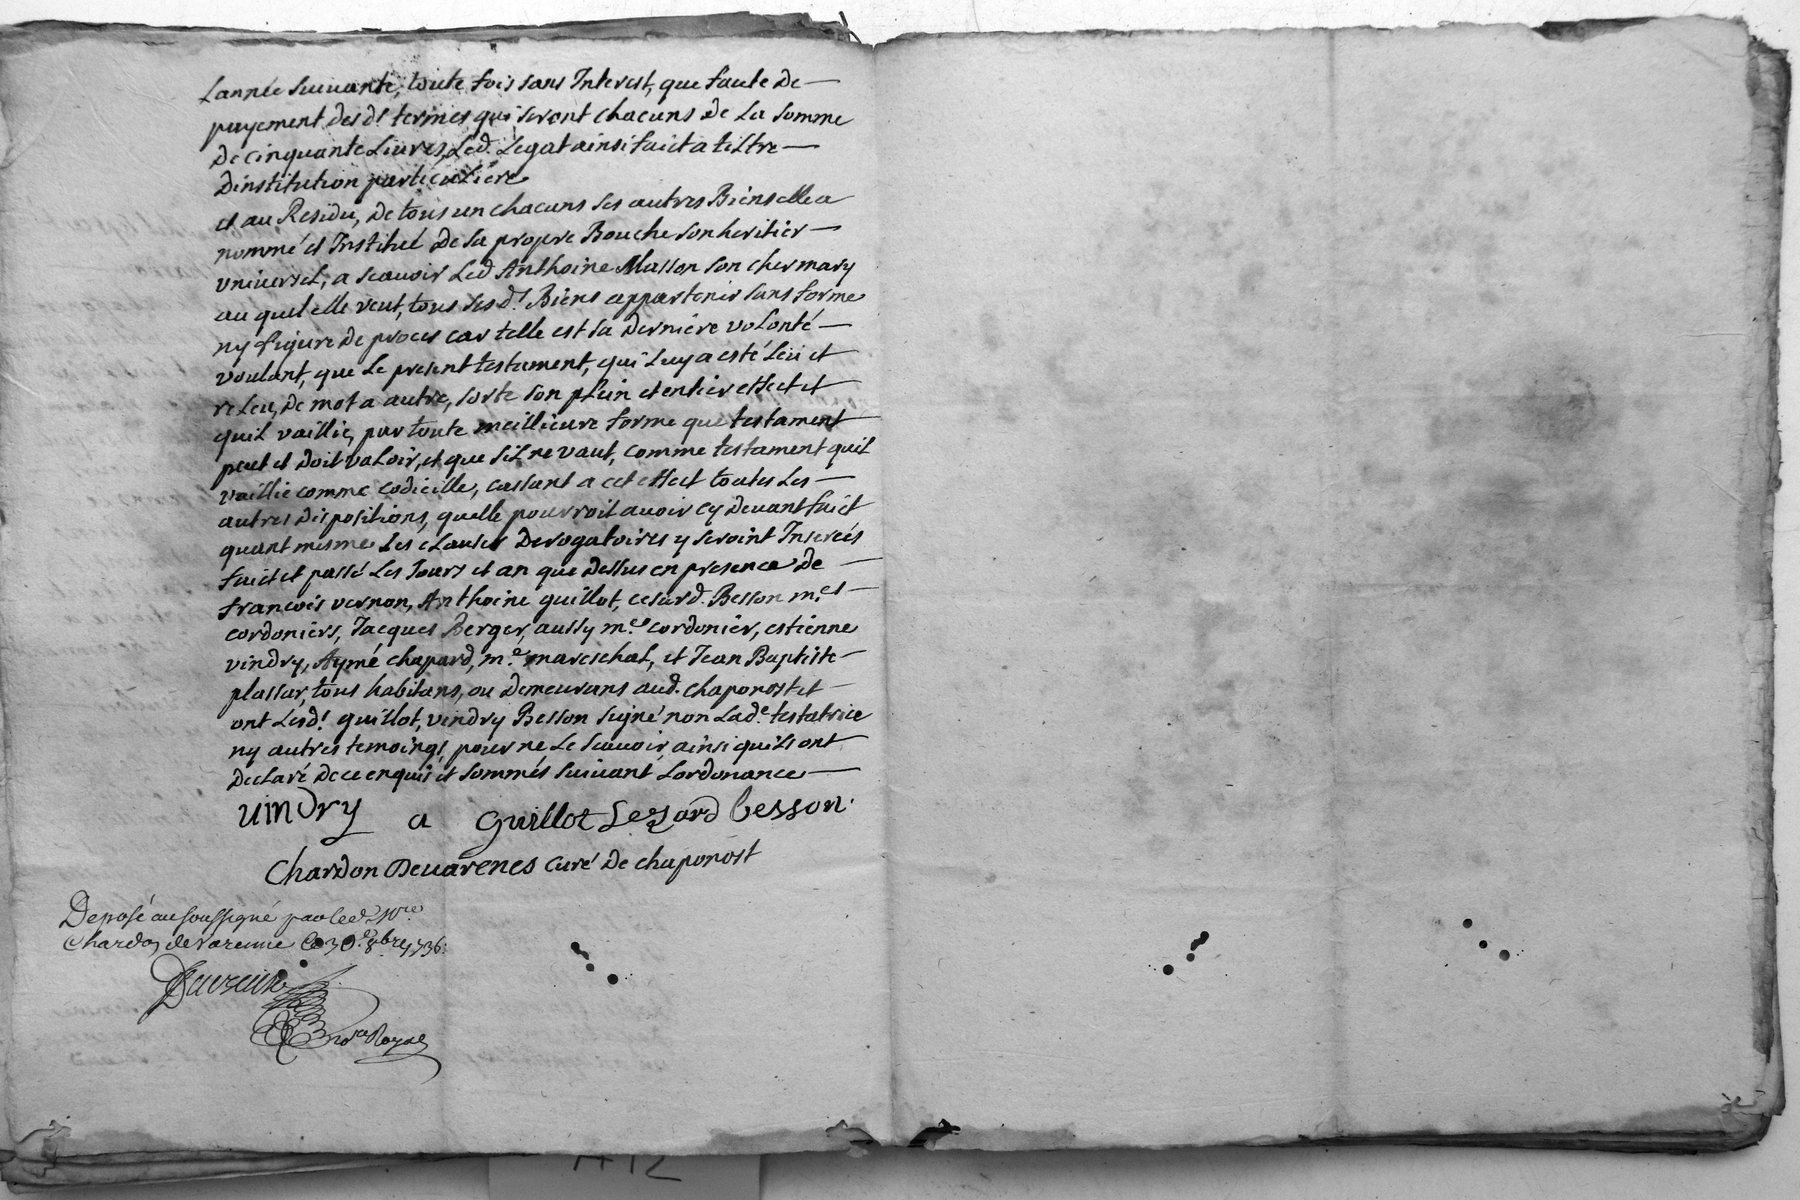 Lannée suivante, toute fois sans Interest, que faute De
payement desd.s termes qui seront chacuns De La somme
De cinquante Livres, Led. Legat ainsi faict a tiltre
Dinstitution particuliere
et au Residu, De tous un chacuns ses autres Biens elle a
nommé et Institué De sa propre Bouche son heritier
universel, a scauoir Led Anthoine Masson son cher mary
au quel elle veut, tous sesd.s Biens appartenir sans forme
ny figure De proces car telle est sa Derniere volonté
voulant, que Le present testament, qui Luy a esté Leü et
releu, De mot a autre, sorte son plein et entier effect et
quil vaillie, par toute meillieure forme que testament
peut et Doit valoir, et que sil ne vaut, comme testament quil
vaillie comme codicille, cassant a cet effect toutes Les
autres Dispositions, quelle pourroit avoir cy Devant faict
quant mesme Les clauses Derogatoires y seroint Inserées
faict et passé Les Jours et an que Dessus en presence De
francois vernon, Anthoine guillot, cesard. Besson m.es
cordoniers, Jacques Berger, aussy m.e cordonier, estienne
vindry, Aymé chapard, m.e mareschal, et Jean Baptiste
plassar, tous habitans, ou Demeurans aud. chaponost et
ont Lesd.s guillot, vindry Besson signé non Lad.e testatrice
ny autres temoings, pour ne Le scauoir, ainsi quils ont
Declaré De ce enquis et sommés suivant Lordonance
vindry a Guillot Sezard besson
Chardon Devarenes curé De chaponost
Deposé au soussigné par led.
Chardon de Varenne Le 30.e 8bre 1736
no.re Royal
A12